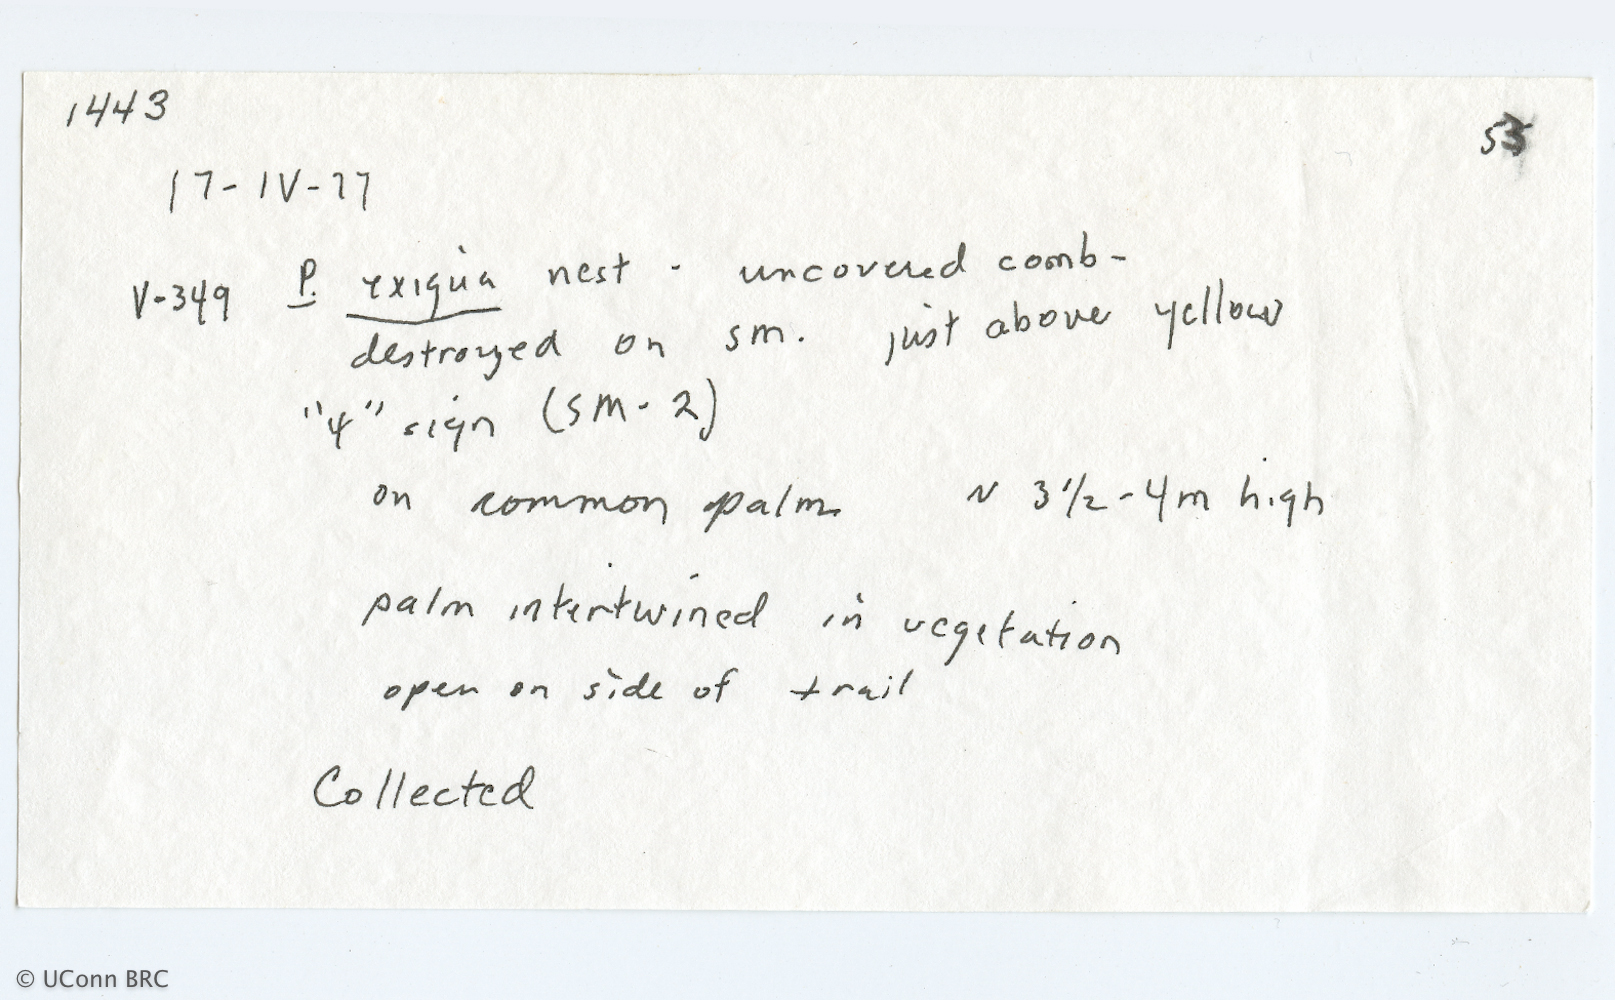 1443
53
17-IV-77
V-349 P. exigua nest - uncovered comb-
destroyed on sm. just above yellow
"4" sign (SM-2)
on common palm ~ 3 1/2 - 4m high
palm intertwined in vegetation
open on side of trail
Collected
© UConn BRC